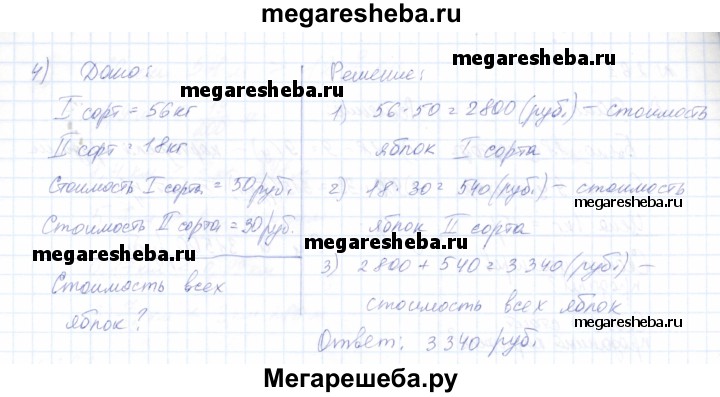 megaresheba.ru
4) Дано:
I сорт = 56 кг
II сорт = 18 кг
Стоимость I сорта = 50 руб.
Стоимость II сорта = 30 руб.
Стоимость всех
яблок?
Решение:
1) 56 · 50 = 2800 (руб.) – стоимость
яблок I сорта
2) 18 · 30 = 540 (руб.) – стоимость
яблок II сорта
3) 2800 + 540 = 3340 (руб.) –
стоимость всех яблок
Ответ: 3340 руб.
megaresheba.ru
megaresheba.ru
megaresheba.ru
megaresheba.ru
megaresheba.ru
Мегарешеба.ру